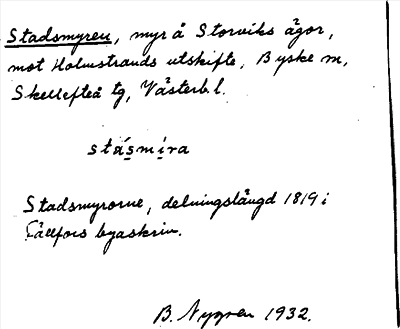 Stadsmyren, myr å Storviks ägor,
mot Holmstrands utskifte, Byske m,
Skellefteå tg, Västerb l.
stásmíra
Stadsmyrorne, delningslängd 1819 i
Fällfors byaskrin.
B. Nygren 1932.